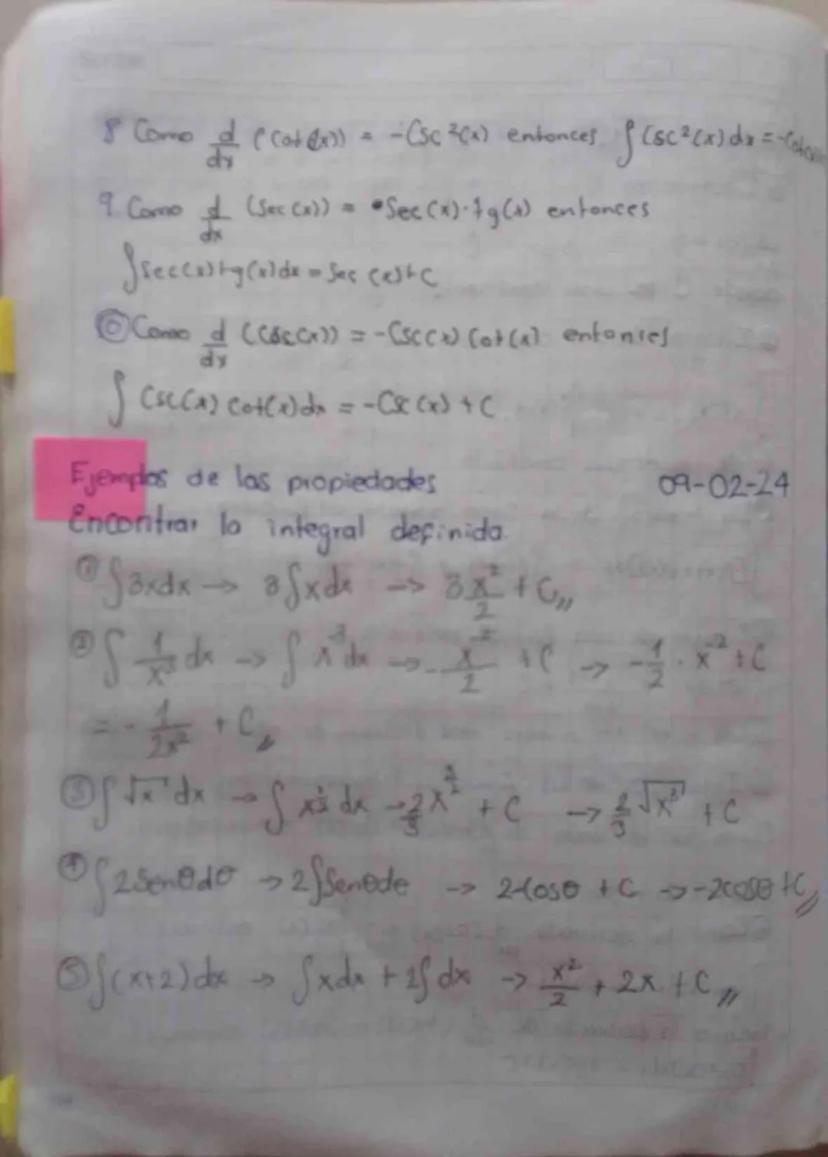 8 Como d/dx (Cot(x)) = -Csc²(x) entonces ∫Csc²(x)dx = -Cot(x)
9. Como d/dx (Sec(x)) = Sec(x)·tg(x) entonces
∫Sec(x)tg(x)dx = Sec(x)+C
10 Como d/dx (Csc(x)) = -Csc(x) Cot(x) entonces
∫ Csc(x) cot(x)dx = -Csc(x) + C
Ejemplos de las propiedades 09-02-24
Encontrar la integral definida
① ∫3xdx → 3∫xdx → 3x²/2 + C,,
② ∫ 1/x³ dx → ∫ x⁻³dx → -x⁻²/2 + C → -1/2 · x⁻² + C
= -1/2x² + C,,
③ ∫√x dx → ∫ x^½ dx → 2/3 x^3/2 + C → 2/3 √x³ + C
④ ∫2Senθdθ → 2∫Senθdθ → 2-Cosθ + C → -2cosθ + C,,
⑤ ∫(x+2)dx → ∫xdx + 2∫dx → x²/2 + 2x + C,,